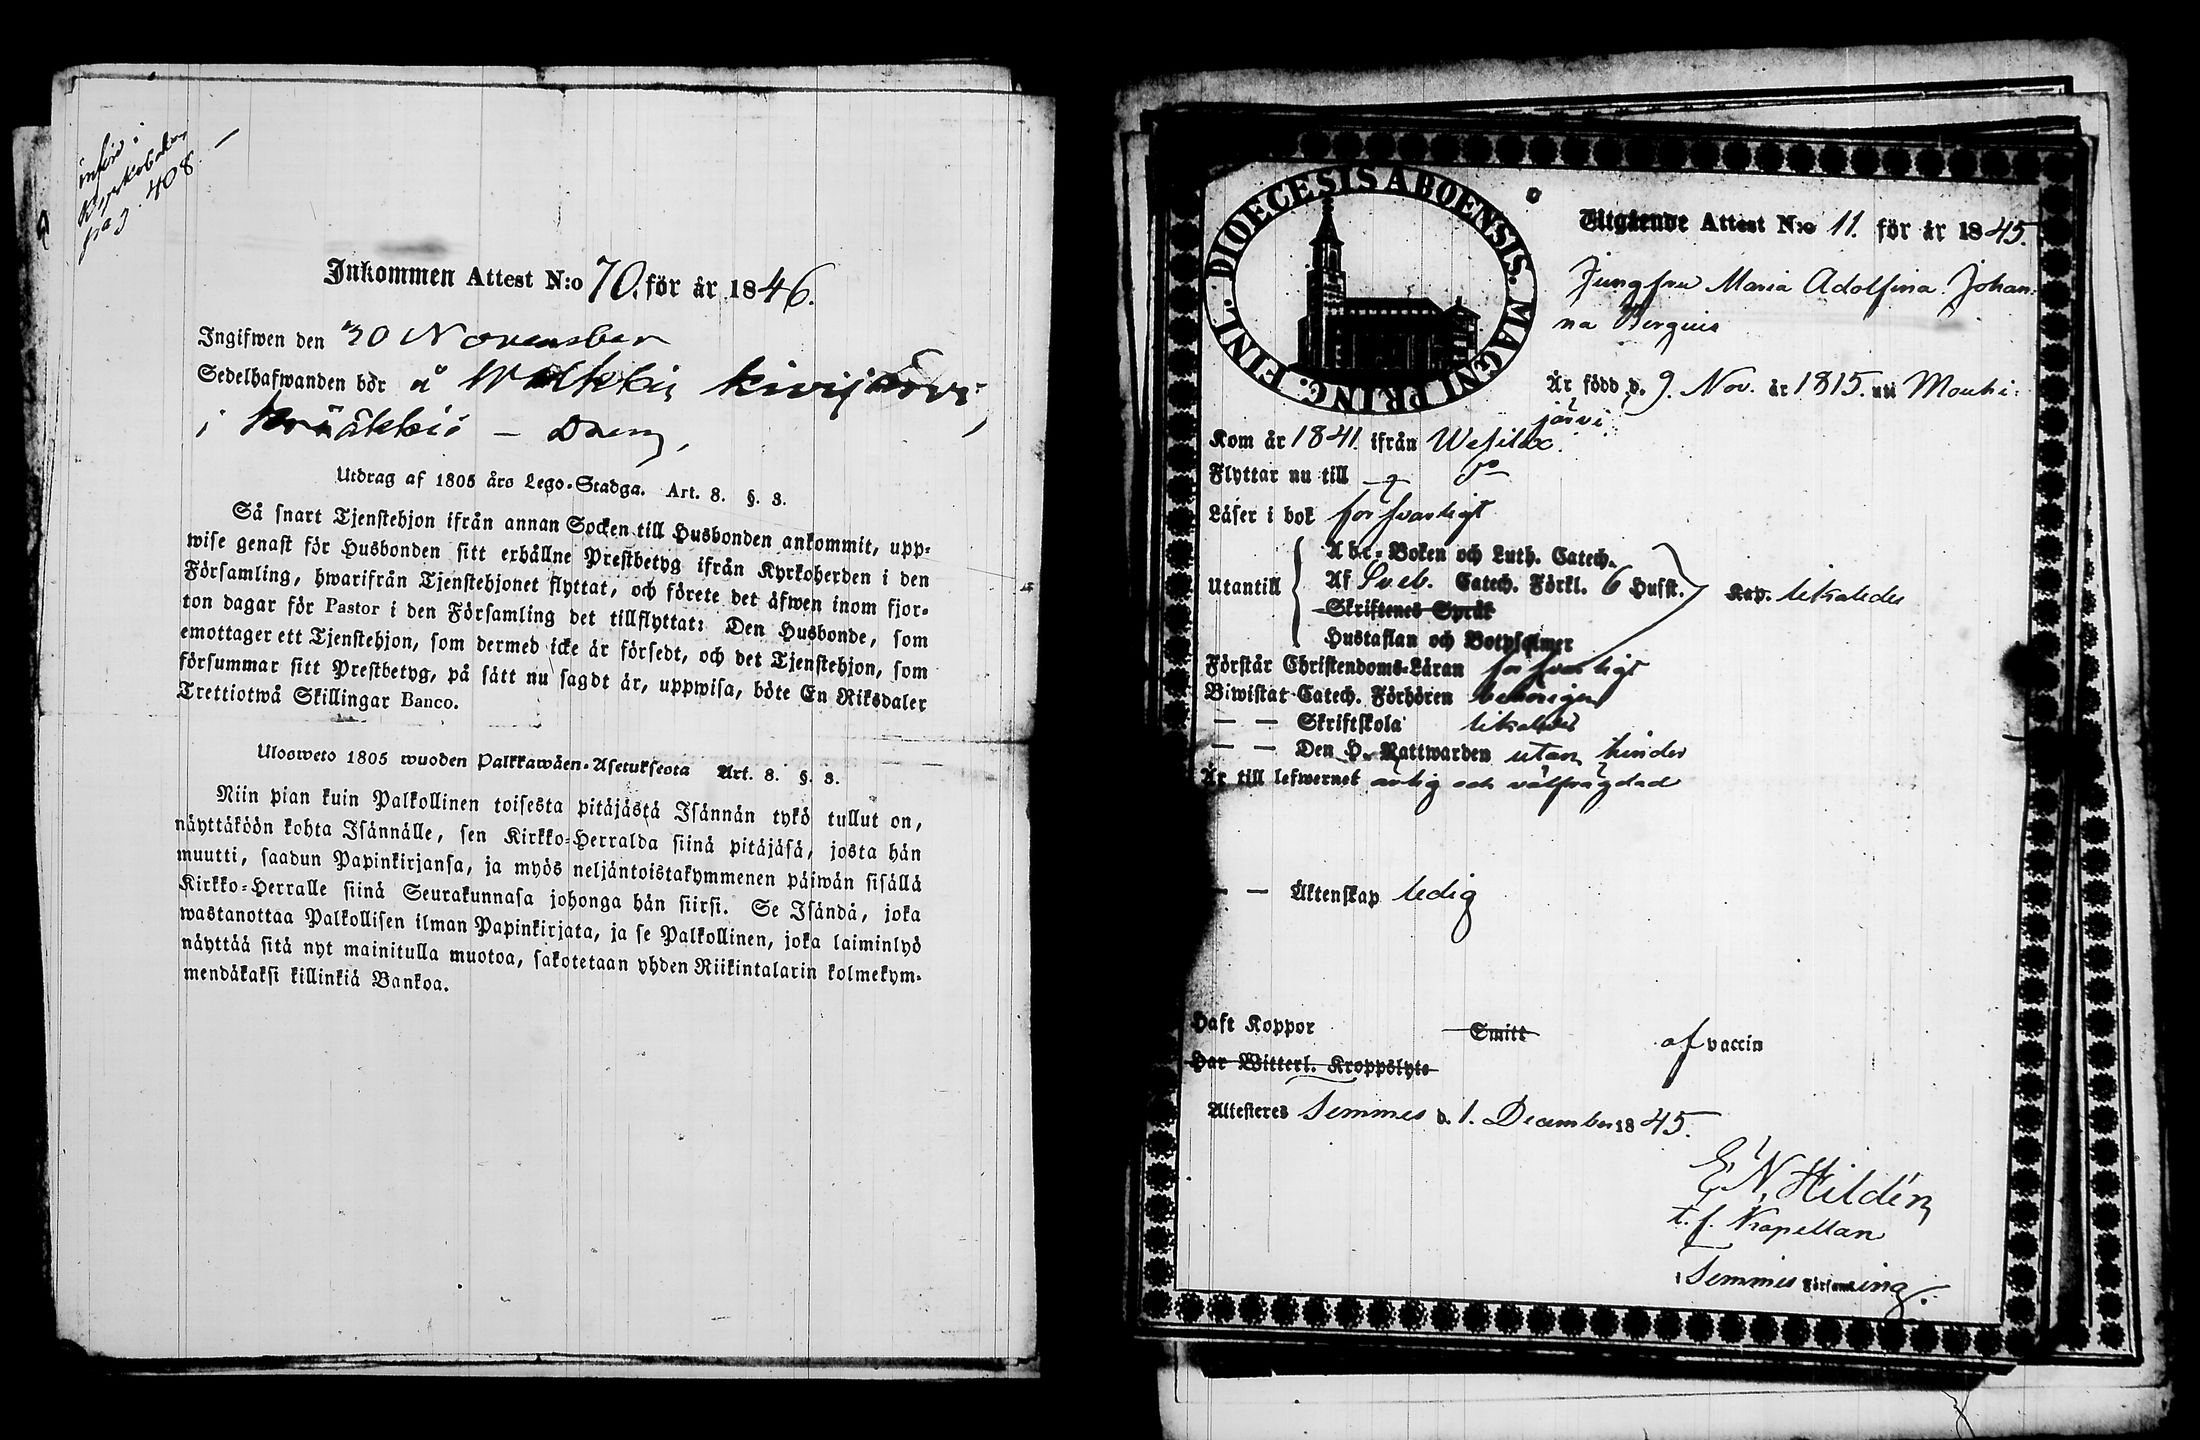 införd i
Kyrkoboken
pag. 408. —
Inkommen Attest N:o 70. för år 1846.
Ingifwen den 30 November
Sedelhafwanden bor å
i — 
Utdrag af 1805 års Lego-Stadga. Art. 8. §. 3.
Så snart Tjenstehjon ifrån annan Socken till Husbonden ankommit, upp-
wise genast för Husbonden sitt erhållne Prestbetyg ifrån Kyrkoherden i den
Församling, hwarifrån Tjenstehjonet flyttat, och förete det äfwen inom fjor-
ton dagar för Pastor i den Församling det tillflyttat: Den Husbonde, som
emottager ett Tjenstehjon, som dermed icke är försedt, och det Tjenstehjon, som
försummar sitt Prestbetyg, på sätt nu sagdt är, uppwisa, böte En Riksdaler
Trettiotwå Skillingar Banco.
Ulosweto 1805 wuoden Palkkawäen-Asetuksesta Art. 8. §. 3.
Niin pian kuin Palkollinen toisesta pitäjästä Isännän tykö tullut on,
näyttäköön kohta Isännälle, sen Kirkko-Herralda siinä pitäjäsä, josta hän
muutti, saadun Papinkirjansa, ja myös neljäntoistakymmenen päiwän sisällä
Kirkko-Herralle siinä Seurakunnasa johonga hän siirsi. Se Isändä, joka
wastanottaa Palkollisen ilman Papinkirjata, ja se Palkollinen, joka laiminlyö
näyttää sitä nyt mainitulla muotoa, sakotetaan yhden Riikintalarin kolmekym-
mendäkaksi killinkiä Bankoa.
FINL. DIOECESIS ABOENSIS. MAGNI PRINC.
Utgående Attest N:o 11. för år 1845.
Jungfru Maria Adolfina Johan-
na Bergius
Är född d. 9. Nov. år 1815. uti Mouhi-
järvi.
Kom år 1841. ifrån Wesilax.
Flyttar nu till — do —
Läser i bok försvarligt
Utantill
Abc-Boken och Luth. Catech.
Af Sveb. Catech. Förkl. 6 Hufst. Kap. likaledes
Skriftenes Språk
Hustaflan och Botpsalmer
Förstår Christendoms-Läran försvarligt
Biwistat Catech. Förhören behörigen
— — Skriftskola likaledes
— — Den H. Nattwarden utan hinder
Är till lefwernet ärlig och välfrägdad
— — Äktenskap ledig
Haft Koppor Smitt af vaccin
Har Witterl. Kroppslyte
Attesteres Temmes d. 1. December 1845.
E. N. Hildén
t. f. Kapellan
i Temmes Församling.